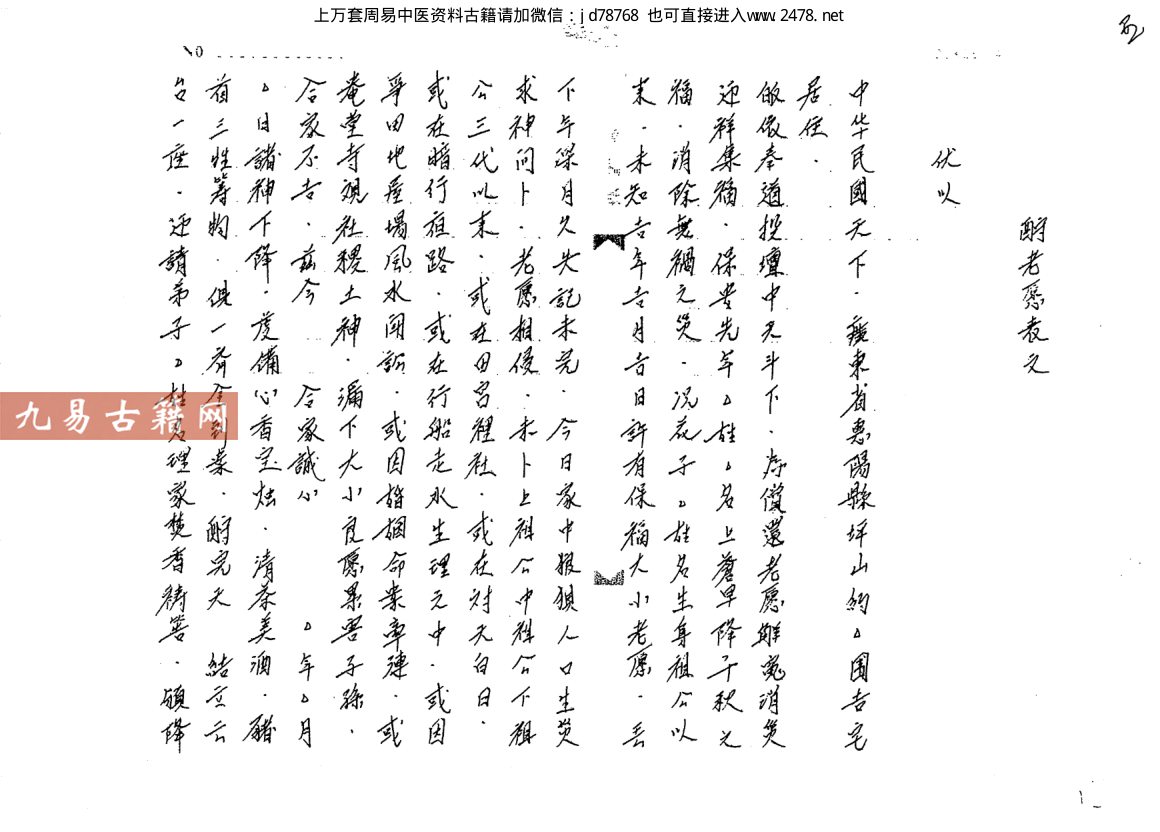 上万套周易中医资料古籍请加微信：jd78768 也可直接进入www.2478.net
NO
酧老愿表文
伏以
中华民國天下．廣東省惠陽縣坪山約△围吉宅
居住．
皈依奉道投壇中天斗下．为償還老愿解冤消災
迎祥集福．保安先年△姓△名上蒼早降千秋之
福．消除無禍之災．况花子△姓名生身祖公以
来．未知吉年吉月吉日許有保福大小老愿．丟
下年深月久失記未完．今日家中报狽人口生災
求神問卜．老愿相侵．未卜上祖公中祖公下祖
公三代以来．或在田宫裡社．或在对天白日．
或在暗行夜路．或在行船走水生理之中．或因
爭田地屋場風水闹訟．或因婚姻命案牽連．或
庵堂寺观社稷土神．漏下大小良愿累害子孫．
合家不吉．茲今 合家誠心 △年△月
△日諸神下降．虔備心香宝烛．清茶美酒．豬
首三牲等物．俱一齐全到案．酧完天 結立云
台一座．还請弟子△姓名理家焚香祷筶．頒降
九易古籍网